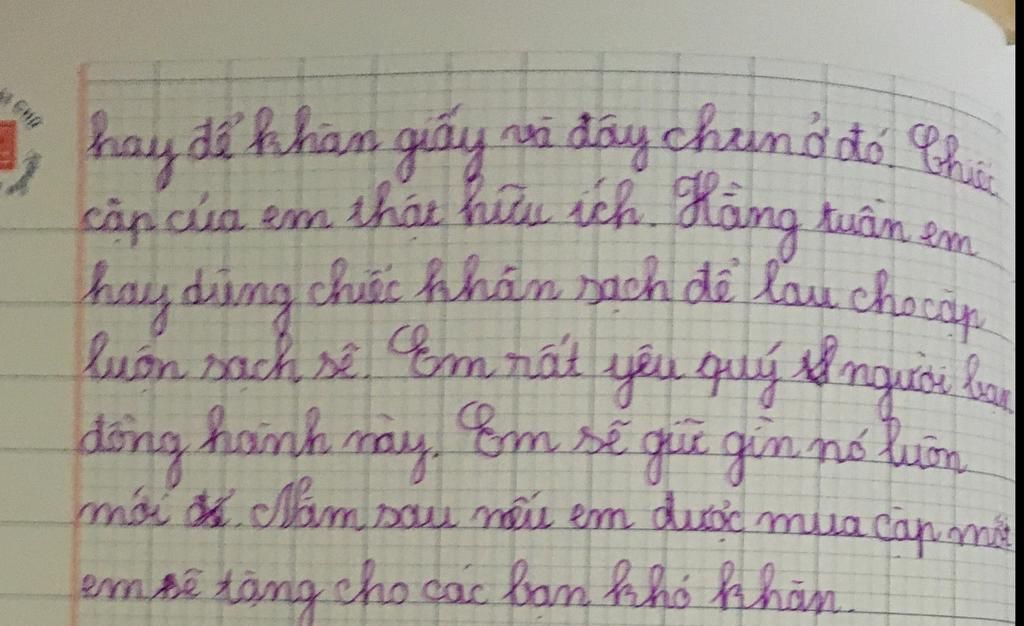 hay để khăn giấy và dây chun ở đó. Chiếc
cặp của em thật hữu ích. Hằng tuần em
hay dùng chiếc khăn sạch để lau cho cặp
luôn sạch sẽ. Em rất yêu quý người bạn
đồng hành này. Em sẽ giữ gìn nó luôn
mới. Năm sau nếu em được mua cặp mới
em sẽ tặng cho các bạn khó khăn.